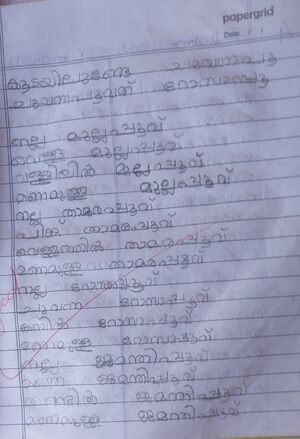 papergrid
Date: / /
കുടയിലുണ്ടേ ചുവന്നപൂ
ചുവന്നപൂവത് റോസാപ്പൂ
നല്ല മുല്ലപ്പൂവ്
വെള്ള മുല്ലപ്പൂവ്
വള്ളിയിൽ മുല്ലപ്പൂവ്
മണമുള്ള മുല്ലപ്പൂവ്
നല്ല താമരപ്പൂവ്
പിങ്ക് താമരപ്പൂവ്
വെള്ളത്തിൽ താമരപ്പൂവ്
മണമുള്ള താമരപ്പൂവ്
നല്ല റോസാപ്പൂവ്
ചുവന്ന റോസാപ്പൂവ്
റോസാപ്പൂവ്
മണമുള്ള റോസാപ്പൂവ്
നല്ല ജമന്തിപ്പൂവ്
മഞ്ഞ ജമന്തിപ്പൂവ്
ജമന്തിപ്പൂവ്
മണമുള്ള ജമന്തിപ്പൂവ്